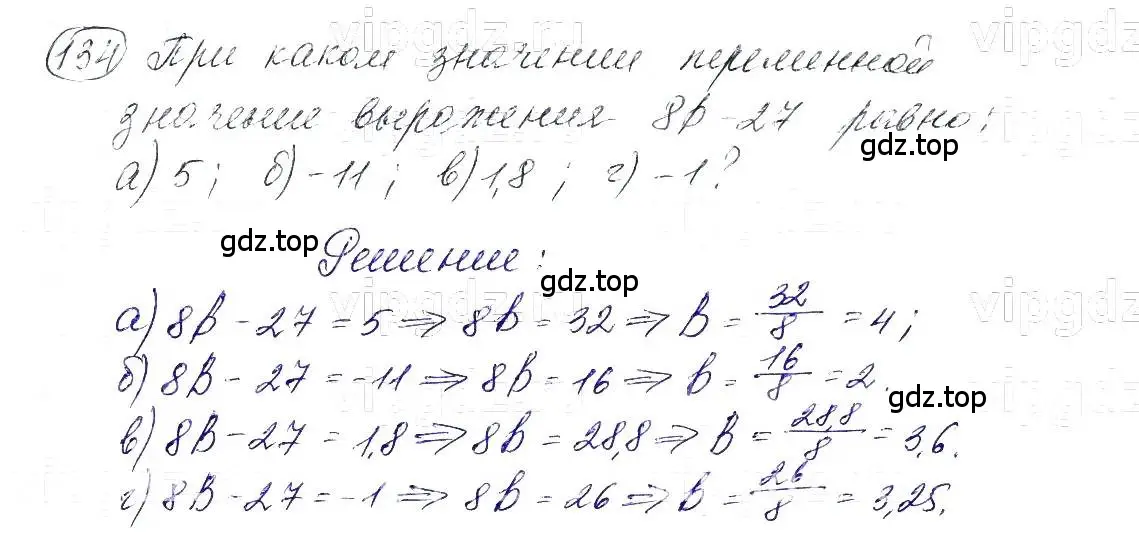 134) При каком значении переменной
значение выражения 8в-27 равно:
а) 5; б) -11; в) 1,8; г) -1?
gdz.top
gdz.top
Решение:
gdz.top
а) 8в - 27 = 5 ⇒ 8в = 32 ⇒ в = 32/8 = 4;
б) 8в - 27 = -11 ⇒ 8в = 16 ⇒ в = 16/8 = 2.
gdz.top
в) 8в - 27 = 1,8 ⇒ 8в = 28,8 ⇒ в = 28,8/8 = 3,6.
г) 8в - 27 = -1 ⇒ 8в = 26 ⇒ в = 26/8 = 3,25.